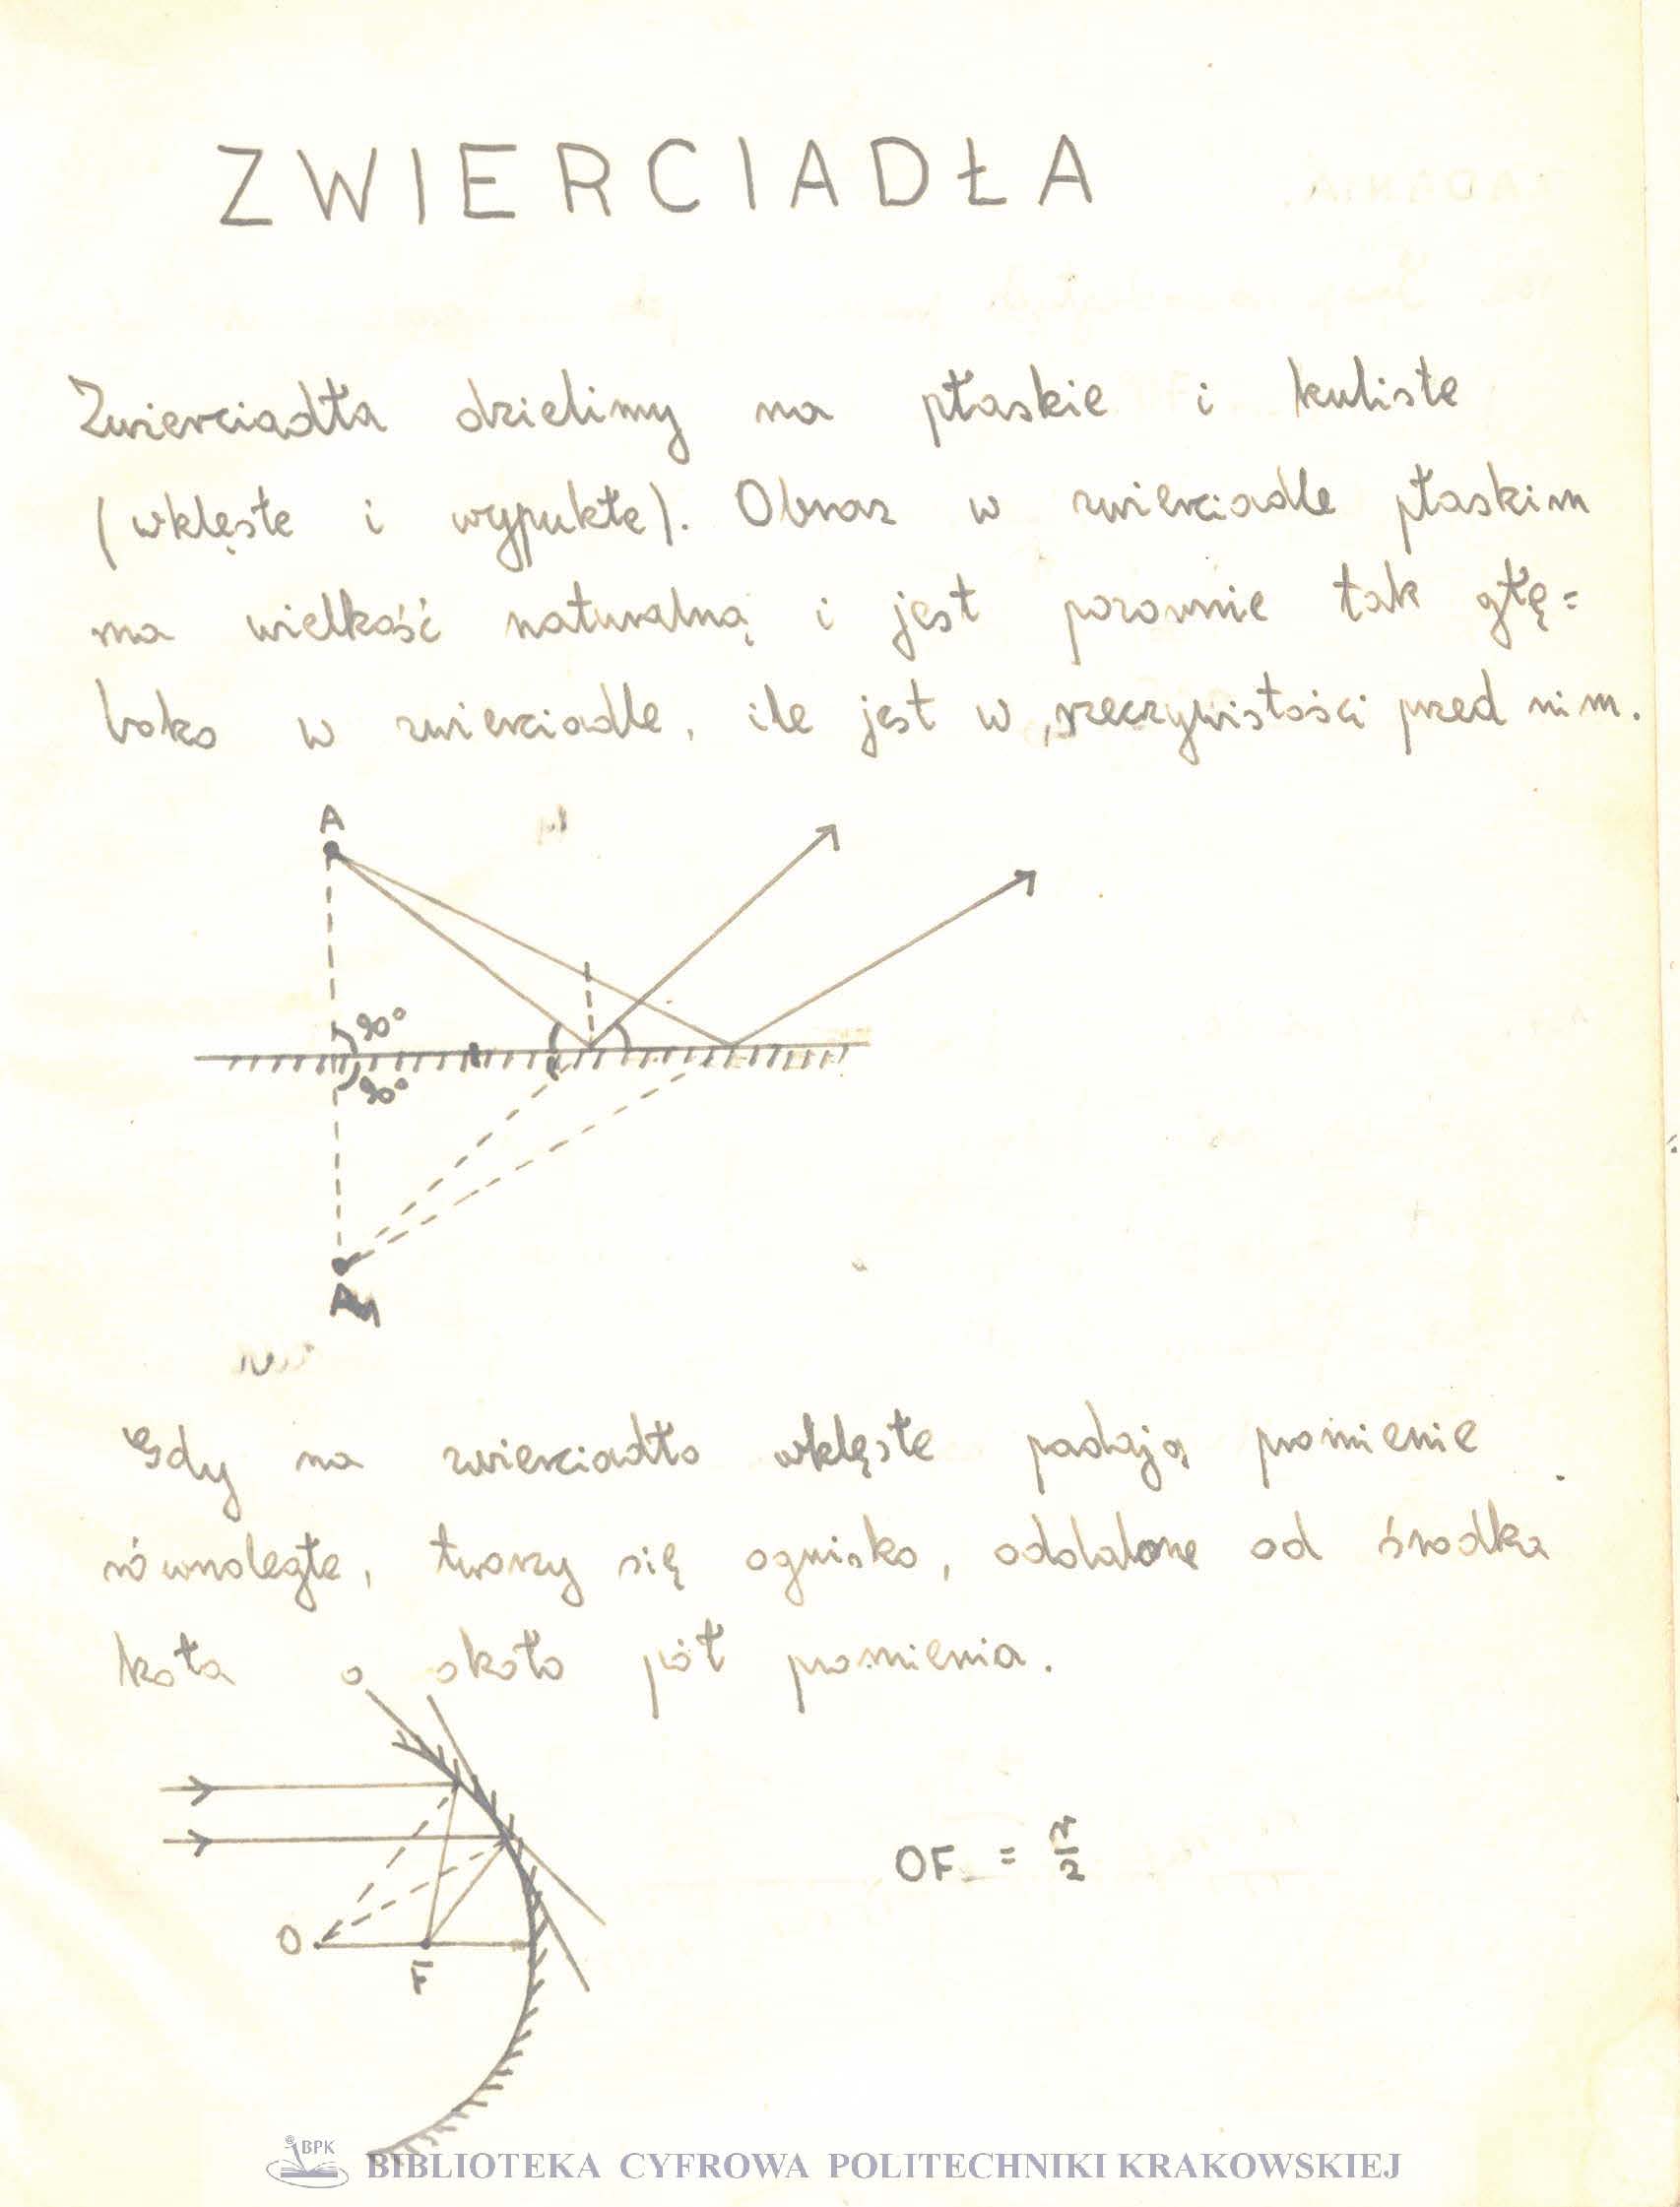 ZWIERCIADŁA
Zwierciadła dzielimy na płaskie i kuliste
(wklęsłe i wypukłe). Obraz w zwierciadle płaskim
ma wielkość naturalną i jest pozornie tak głę=
boko w zwierciadle, ile jest w rzeczywistości przed nim.
A
90°
90°
Gdy na zwierciadło wklęsłe padają promienie
równoległe, tworzy się ognisko, oddalone od środka
koła o około pół promienia.
OF = r/2
O
F
BPK
BIBLIOTEKA CYFROWA POLITECHNIKI KRAKOWSKIEJ